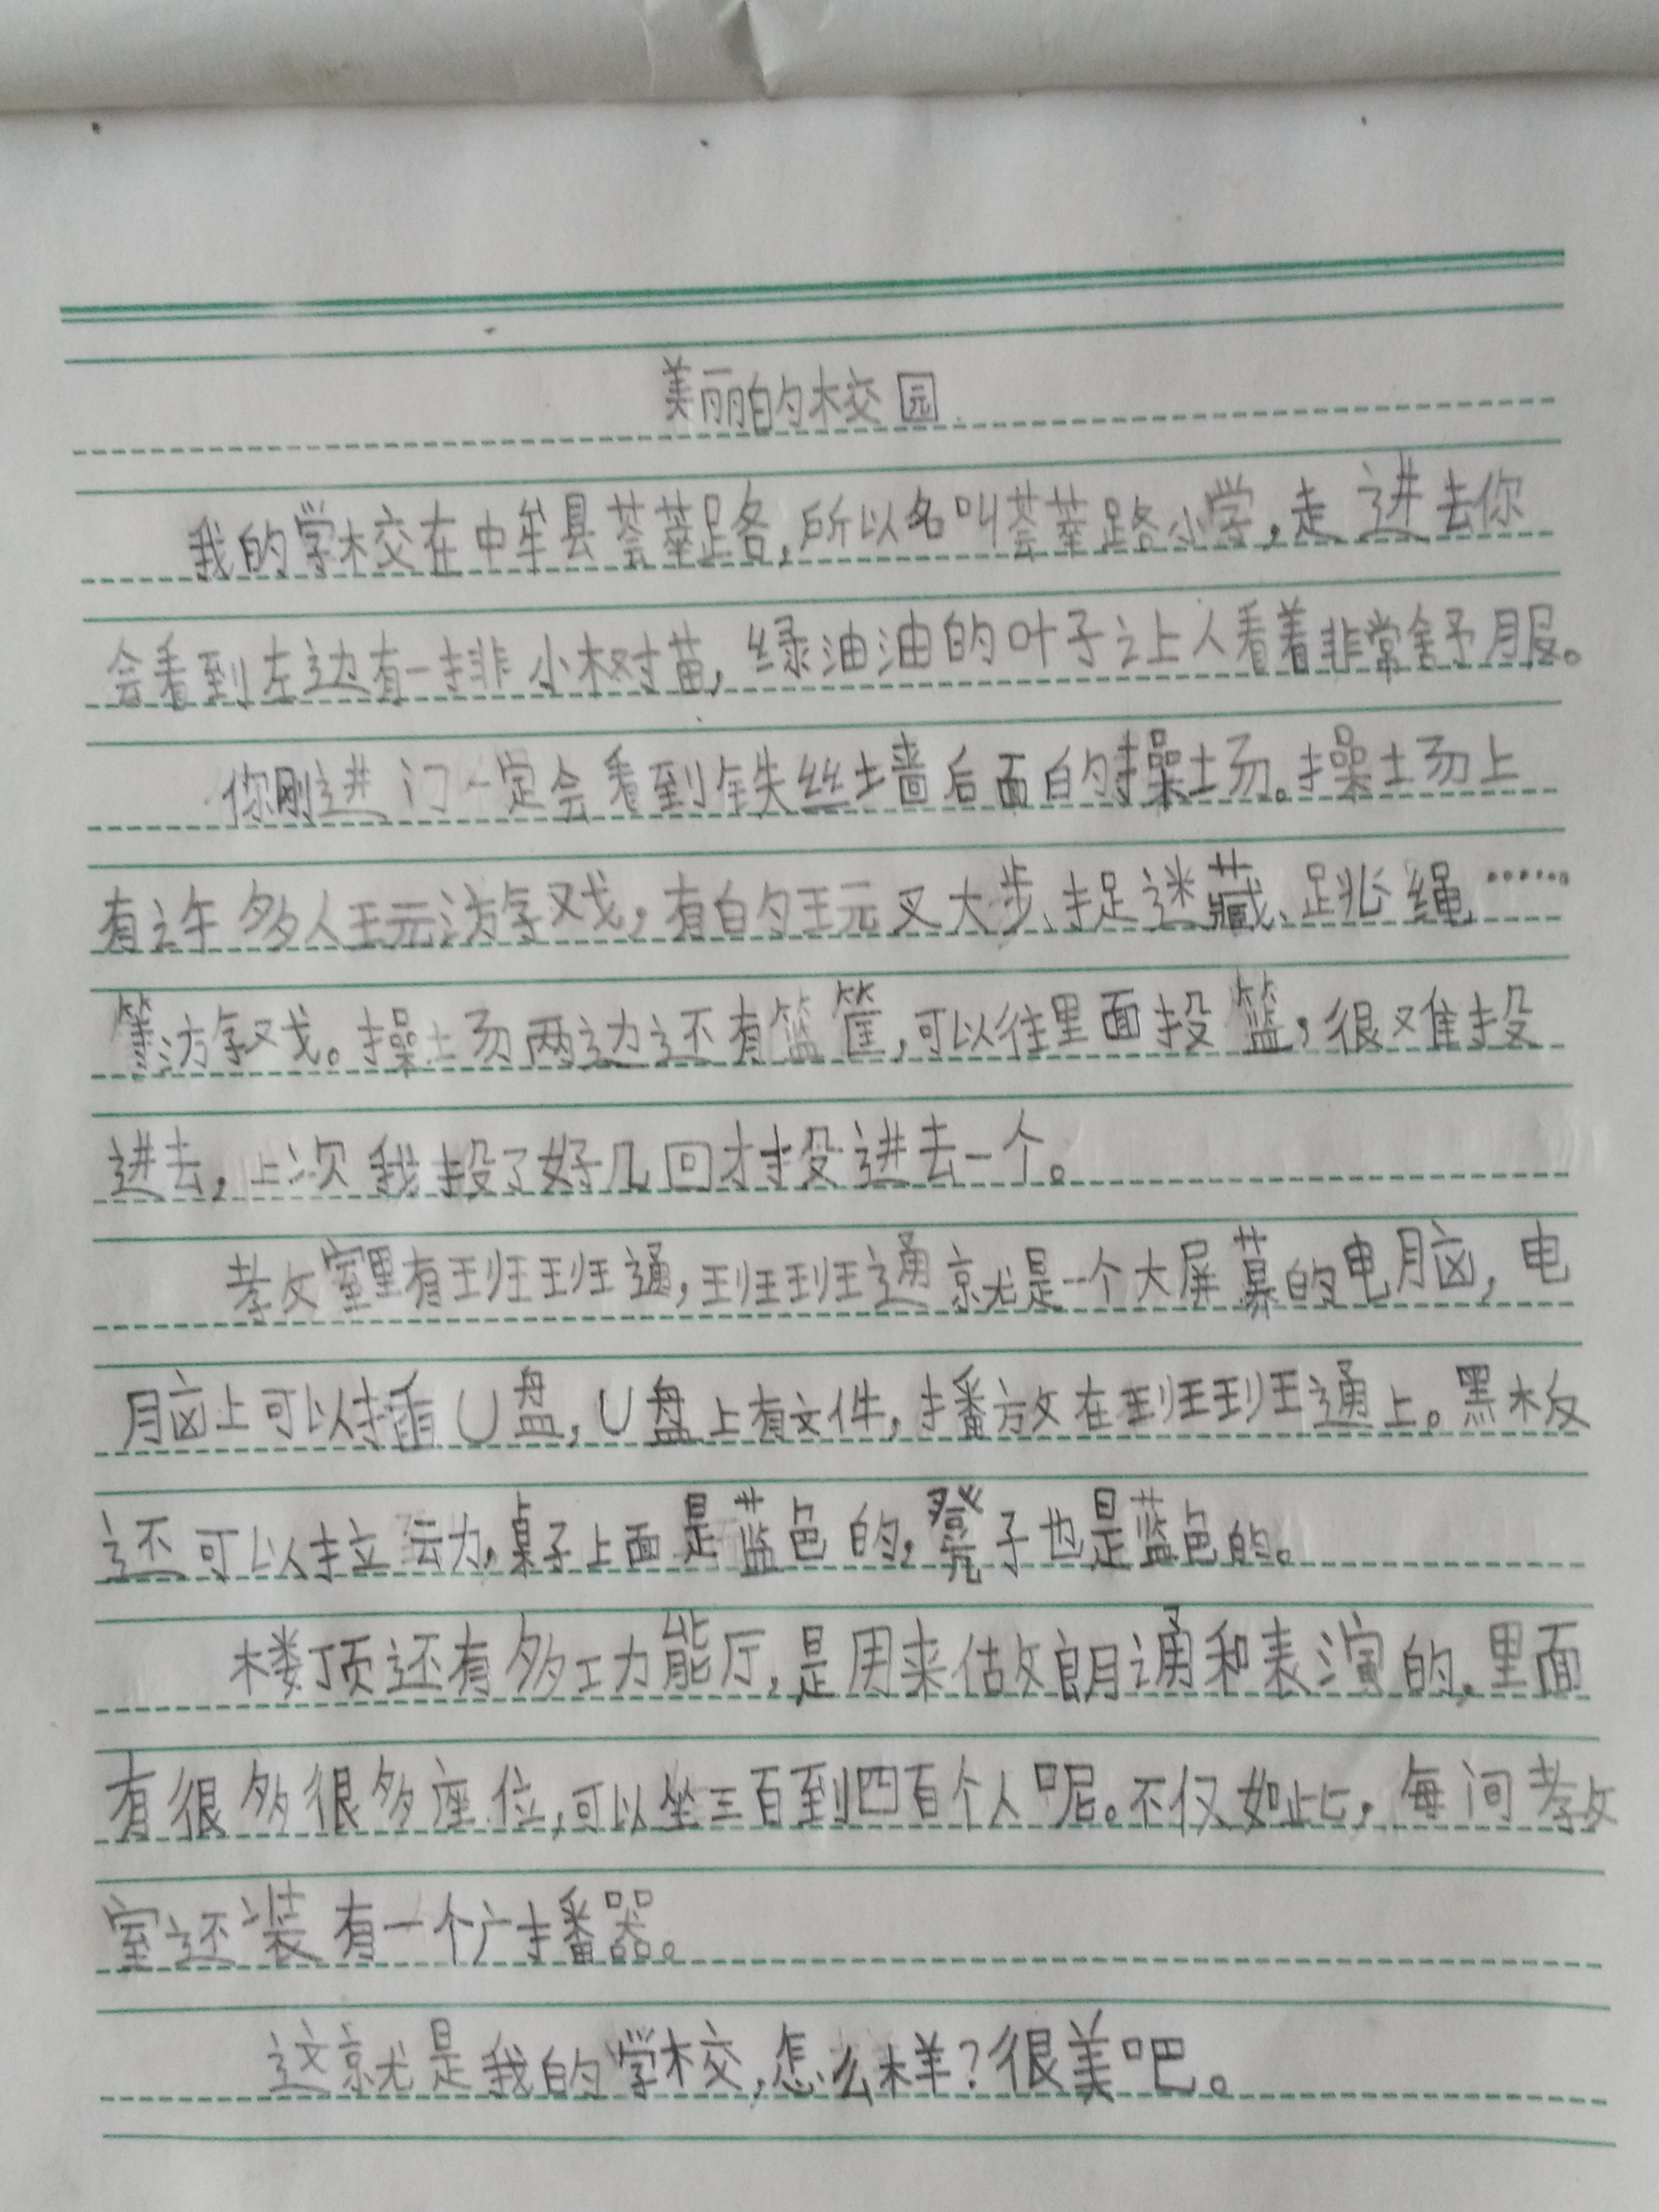 美丽的校园
我的学校在中牟县荟萃路,所以名叫荟萃路小学,走进去你
会看到左边有一排小树苗,绿油油的叶子让人看着非常舒服。
你刚进门一定会看到铁丝墙后面的操场。操场上
有许多人玩游戏,有的玩叉大步、捉迷藏、跳绳……
等游戏。操场两边还有篮筐,可以往里面投篮,很难投
进去,上次我投了好几回才投进去一个。
教室里有班班通,班班通就是一个大屏幕的电脑,电
脑上可以插U盘,U盘上有文件,播放在班班通上。黑板
还可以拉动,桌子上面是蓝色的,凳子也是蓝色的。
楼顶还有多功能厅,是用来做朗诵和表演的,里面
有很多很多座位,可以坐三百到四百个人呢。不仅如此,每间教
室还装有一个广播器。
这就是我的学校,怎么样?很美吧。